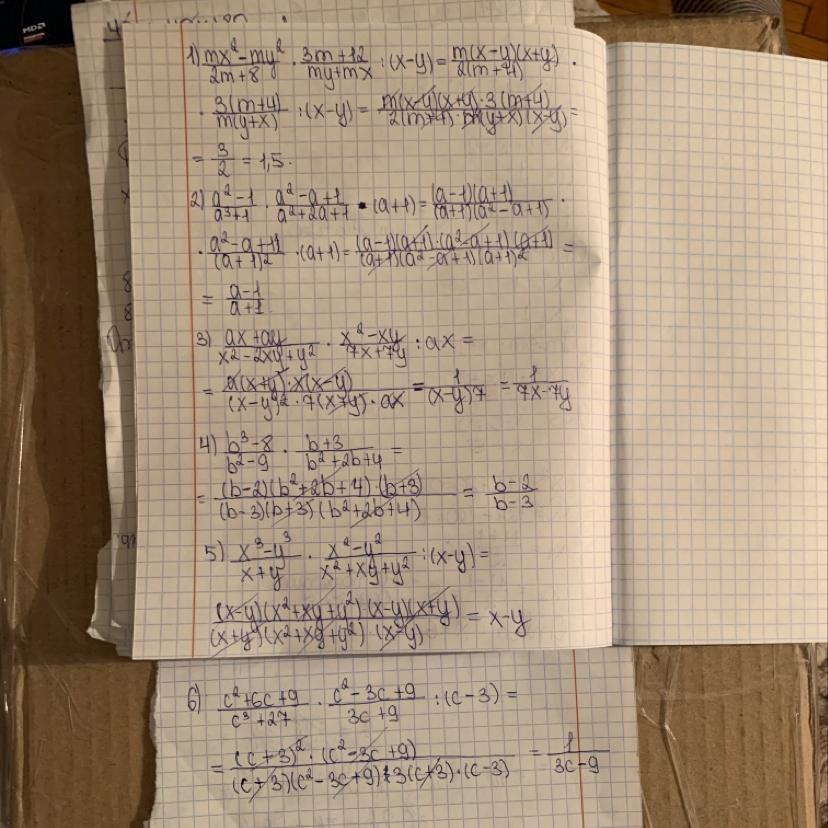 1) \frac{mx^2-my^2}{2m+8} \cdot \frac{3m+12}{my+mx} : (x-y) = \frac{m(x-y)(x+y)}{2(m+4)} \cdot
\cdot \frac{3(m+4)}{m(y+x)} : (x-y) = \frac{m(x-y)(x+y) \cdot 3(m+4)}{2(m+4) \cdot m(y+x)(x-y)} =
= \frac{3}{2} = 1,5.
2) \frac{a^2-1}{a^3+1} \cdot \frac{a^2-a+1}{a^2+2a+1} \cdot (a+1) = \frac{(a-1)(a+1)}{(a+1)(a^2-a+1)} \cdot
\cdot \frac{a^2-a+1}{(a+1)^2} \cdot (a+1) = \frac{(a-1)(a+1) \cdot (a^2-a+1)(a+1)}{(a+1)(a^2-a+1)(a+1)^2} =
= \frac{a-1}{a+1}
3) \frac{ax+ay}{x^2-2xy+y^2} \cdot \frac{x^2-xy}{7x+7y} : ax =
= \frac{a(x+y) \cdot x(x-y)}{(x-y)^2 \cdot 7(x+y) \cdot ax} = \frac{1}{(x-y)7} = \frac{1}{7x-7y}
4) \frac{b^3-8}{b^2-9} \cdot \frac{b+3}{b^2+2b+4} =
= \frac{(b-2)(b^2+2b+4) \cdot (b+3)}{(b-3)(b+3)(b^2+2b+4)} = \frac{b-2}{b-3}
5) \frac{x^3-y^3}{x+y} \cdot \frac{x^2-y^2}{x^2+xy+y^2} : (x-y) =
\frac{(x-y)(x^2+xy+y^2)(x-y)(x+y)}{(x+y)(x^2+xy+y^2)(x-y)} = x-y
6) \frac{c^2+6c+9}{c^3+27} \cdot \frac{c^2-3c+9}{3c+9} : (c-3) =
= \frac{(c+3)^2 \cdot (c^2-3c+9)}{(c+3)(c^2-3c+9) \cdot 3(c+3) \cdot (c-3)} = \frac{1}{3c-9}